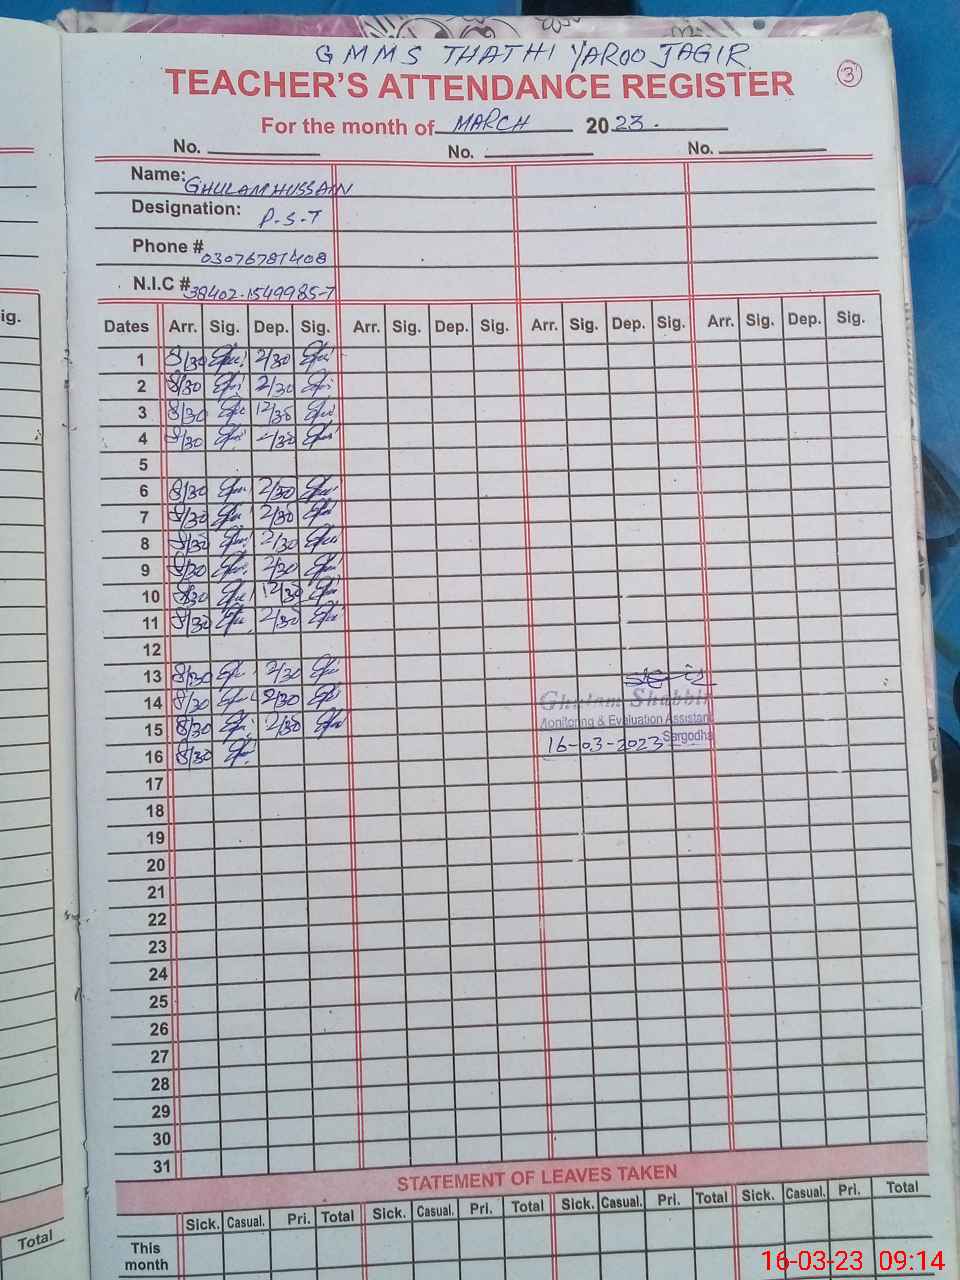 GMMS THATHI YAROO JAGIR
TEACHER'S ATTENDANCE REGISTER
3
For the month of MARCH 2023.
No. No. No.
Name: GHULAM HUSSAIN
Designation: P-S-T
Phone # 03076787408
N.I.C # 38402-1549985-7
ig.
Dates Arr. Sig. Dep. Sig. Arr. Sig. Dep. Sig. Arr. Sig. Dep. Sig. Arr. Sig. Dep. Sig.
1 8/30 2/30
2 8/30 2/30
3 8/30 12/30
4 8/30 2/30
5
6 8/30 2/30
7 8/30 2/30
8 8/30 2/30
9 8/30 2/30
10 8/30 12/30
11 8/30 2/30
12
13 8/30 2/30
14 8/30 2/30
Ghulam Shabbir
15 8/30 2/30
Monitoring & Evaluation Assistant
Sargodha
16 8/30
16-03-2023
17
18
19
20
21
22
23
24
25
26
27
28
29
30
31
STATEMENT OF LEAVES TAKEN
Sick. Casual. Pri. Total Sick. Casual. Pri. Total Sick. Casual. Pri. Total Sick. Casual. Pri. Total
Total
This
month
16-03-23 09:14